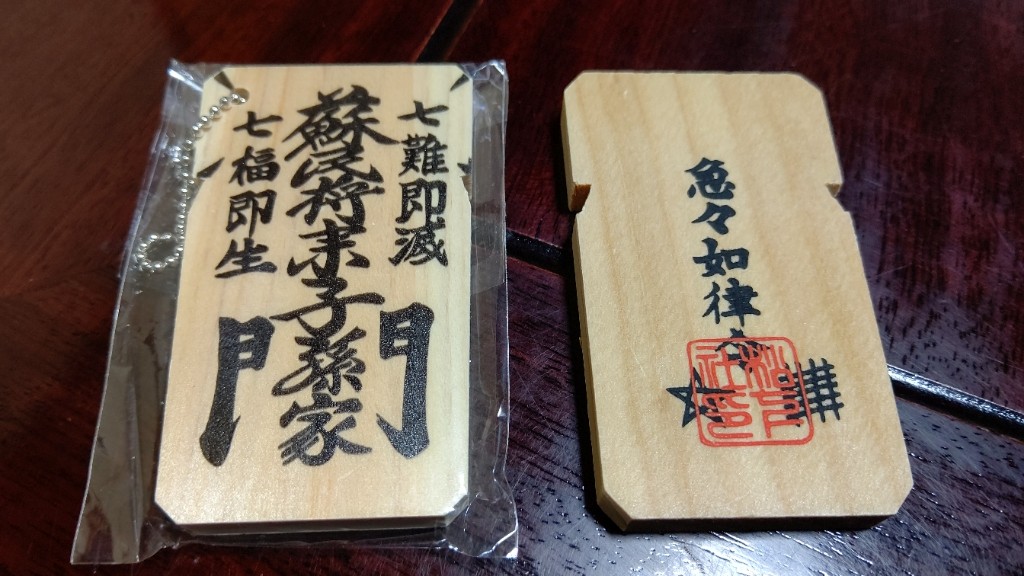 七難即滅
蘇民将来子孫家
門
七福即生
急々如律令
社印